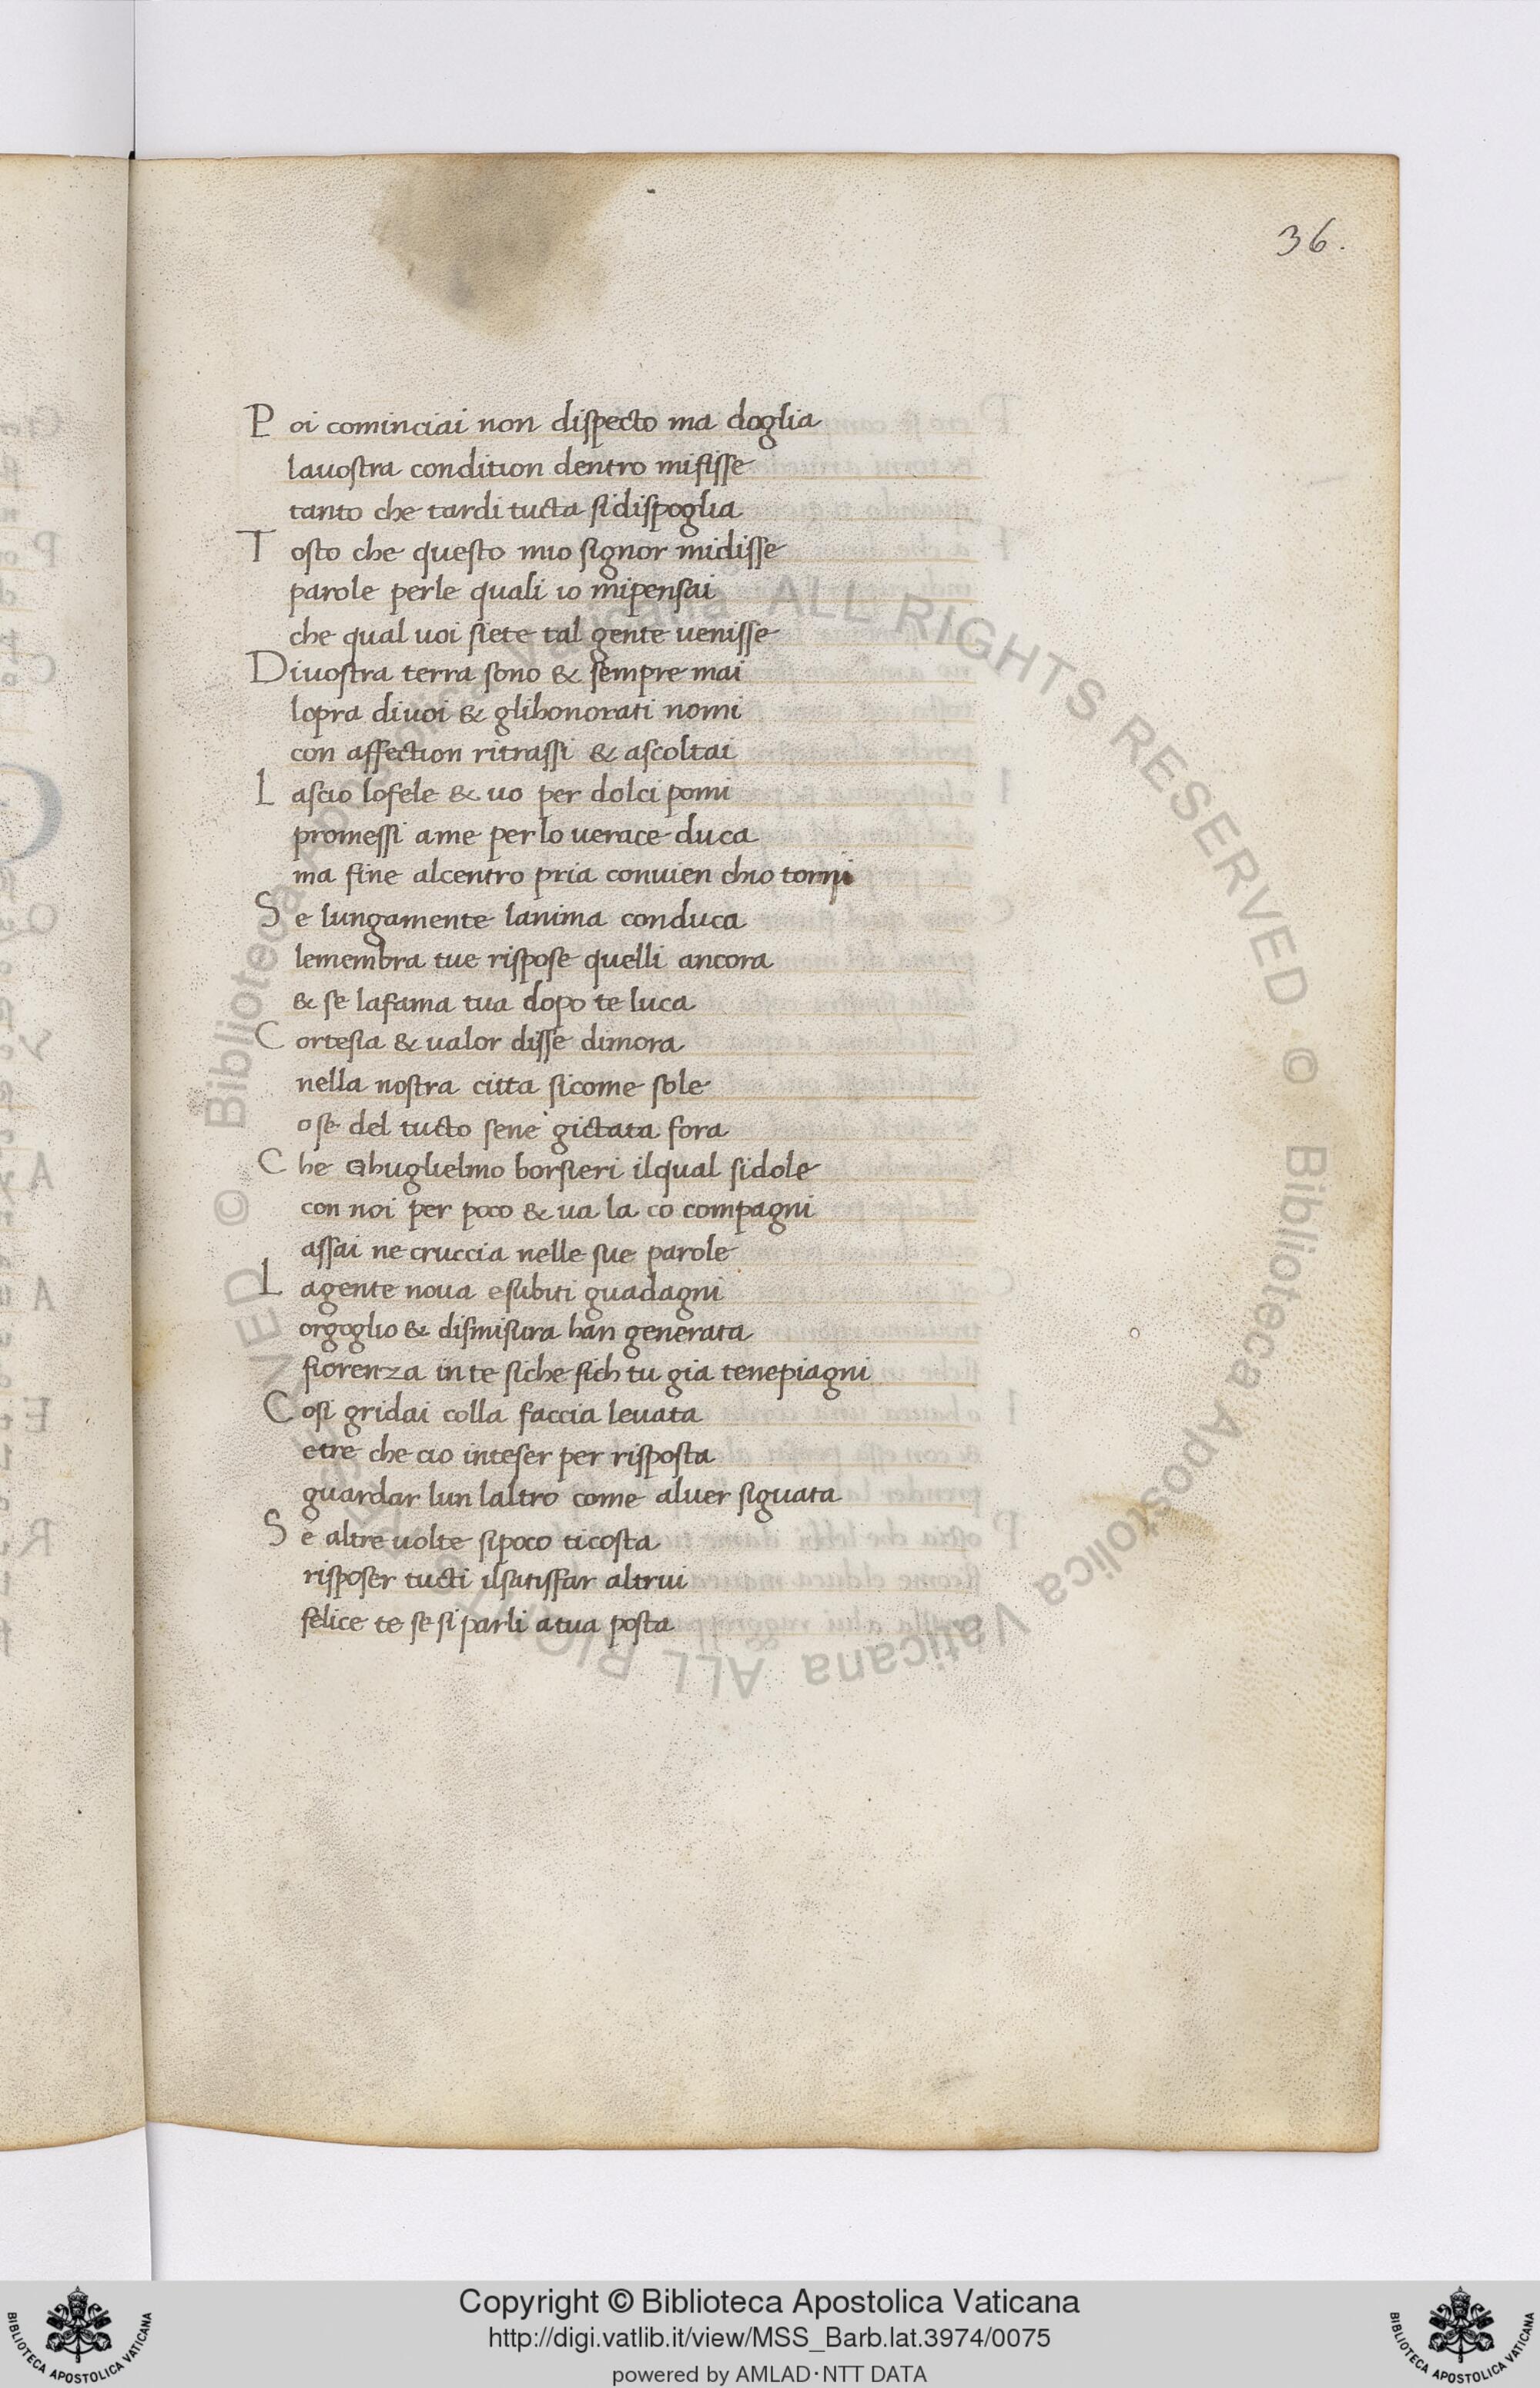 36.
Poi cominciai non dispecto ma doglia
lauostra condition dentro mifisse
tanto che tardi tucta sidispoglia
Tosto che questo mio signor midisse
parole perle quali io mipensai
che qual uoi siete tal gente uenisse
Diuostra terra sono & sempre mai
lopra diuoi & glihonorati nomi
con affection ritrassi & ascoltai
Lascio lofele & uo per dolci pomi
promessi ame per lo uerace duca
ma fine alcentro pria conuien chio tomi
Se lungamente lanima conduca
lemembra tue rispose quelli ancora
& se lafama tua dopo te luca
Cortesia & ualor disse dimora
nella nostra citta sicome sole
ose del tucto sene gictata fora
Che Ghuglielmo borsieri ilqual sidole
con noi per poco & ua la co compagni
assai ne cruccia nelle sue parole
Lagente noua esubiti guadagni
orgoglio & dismisura han generata
fiorenza in te siche sich tu gia tenepiagni
Cosi gridai colla faccia leuata
etre che cio inteser per risposta
guardar lun laltro come aluer siguata
Se altre uolte sipoco ticosta
risposer tucti ilsatisfar altrui
felice te se si parli atua posta
© Biblioteca Apostolica Vaticana ALL RIGHTS RESERVED © Biblioteca Apostolica Vaticana ALL RIGHTS RESERVED
BIBLIOTECA APOSTOLICA VATICANA
Copyright © Biblioteca Apostolica Vaticana
http://digi.vatlib.it/view/MSS_Barb.lat.3974/0075
powered by AMLAD·NTT DATA
BIBLIOTECA APOSTOLICA VATICANA